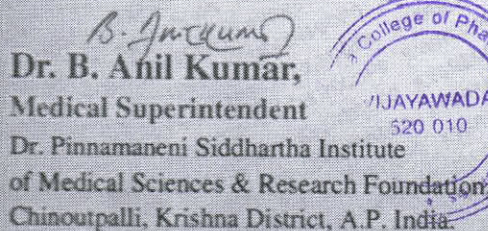 Dr. B. Anil Kumar,
Medical Superintendent
Dr. Pinnamaneni Siddhartha Institute
of Medical Sciences & Research Foundation
Chinoutpalli, Krishna District, A.P. India.
College of Pha
VIJAYAWADA
520 010